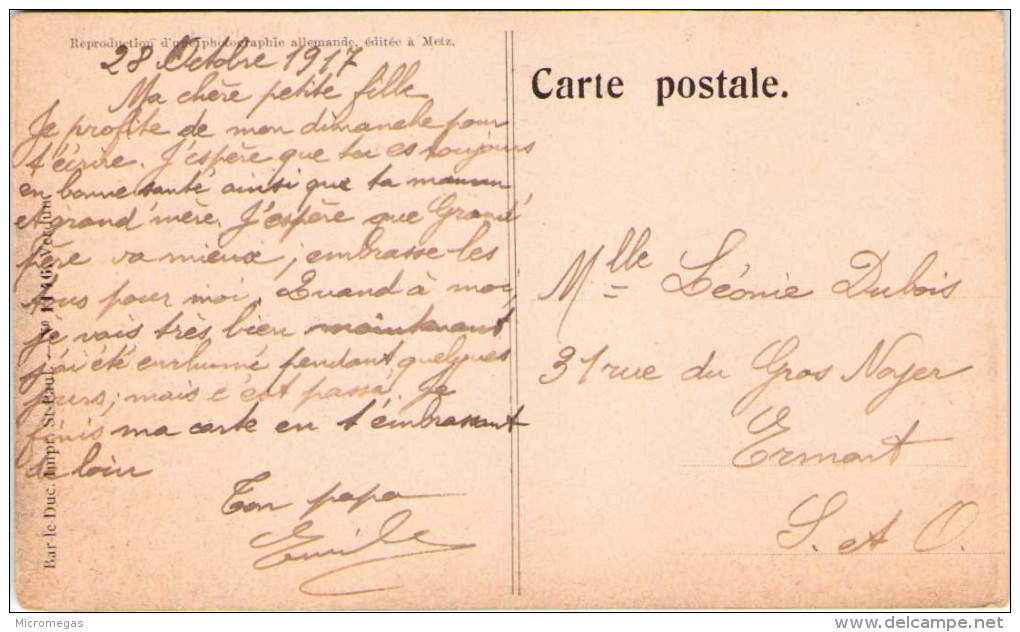 Reproduction d'une photographie allemande, éditée à Metz.
28 Octobre 1917
Ma chère petite fille
Je profite de mon dimanche pour
t'écrire. J'espère que tu es toujours
en bonne santé ainsi que ta maman
et grand'mère. J'espère que Grand'
père va mieux ; embrasse-les
tous pour moi. Quand à moi,
je vais très bien maintenant
j'ai été enrhumé pendant quelques
jours, mais c'est passé, je
finis ma carte en t'embrassant
de loin
Ton papa
Emile
Bar-le-Duc. Impr. St-Paul. — N° 1146. Verdun
Carte postale.
Mlle Léonie Dubois
31 rue du Gros Noyer
Ermont
S. et O.
Micromegas
delcampe.net